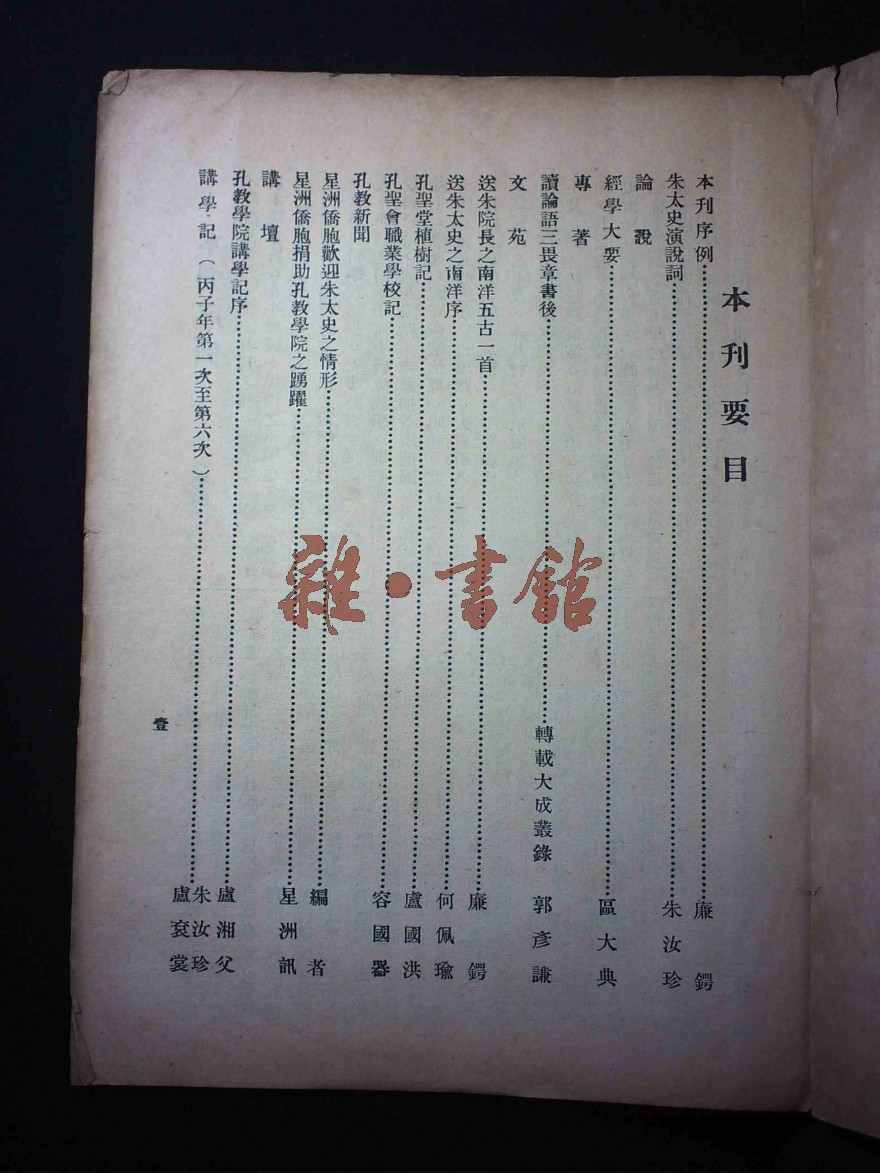 本刊要目
本刊序例……廉鍔
朱太史演說詞……朱汝珍
論說
經學大要……區大典
專著
讀論語三畏章書後……轉載大成叢錄 郭彥謙
文苑
送朱院長之南洋五古一首……廉鍔
送朱太史之南洋序……何佩瑜
孔聖堂植樹記……盧國洪
孔聖會職業學校記……容國器
孔教新聞
星洲僑胞歡迎朱太史之情形……編者
星洲僑胞捐助孔教學院之踴躍……星洲訊
講壇
孔教學院講學記序……盧湘父
講學記(丙子年第一次至第六次)……朱汝珍 盧袞裳
壹
雜·書館